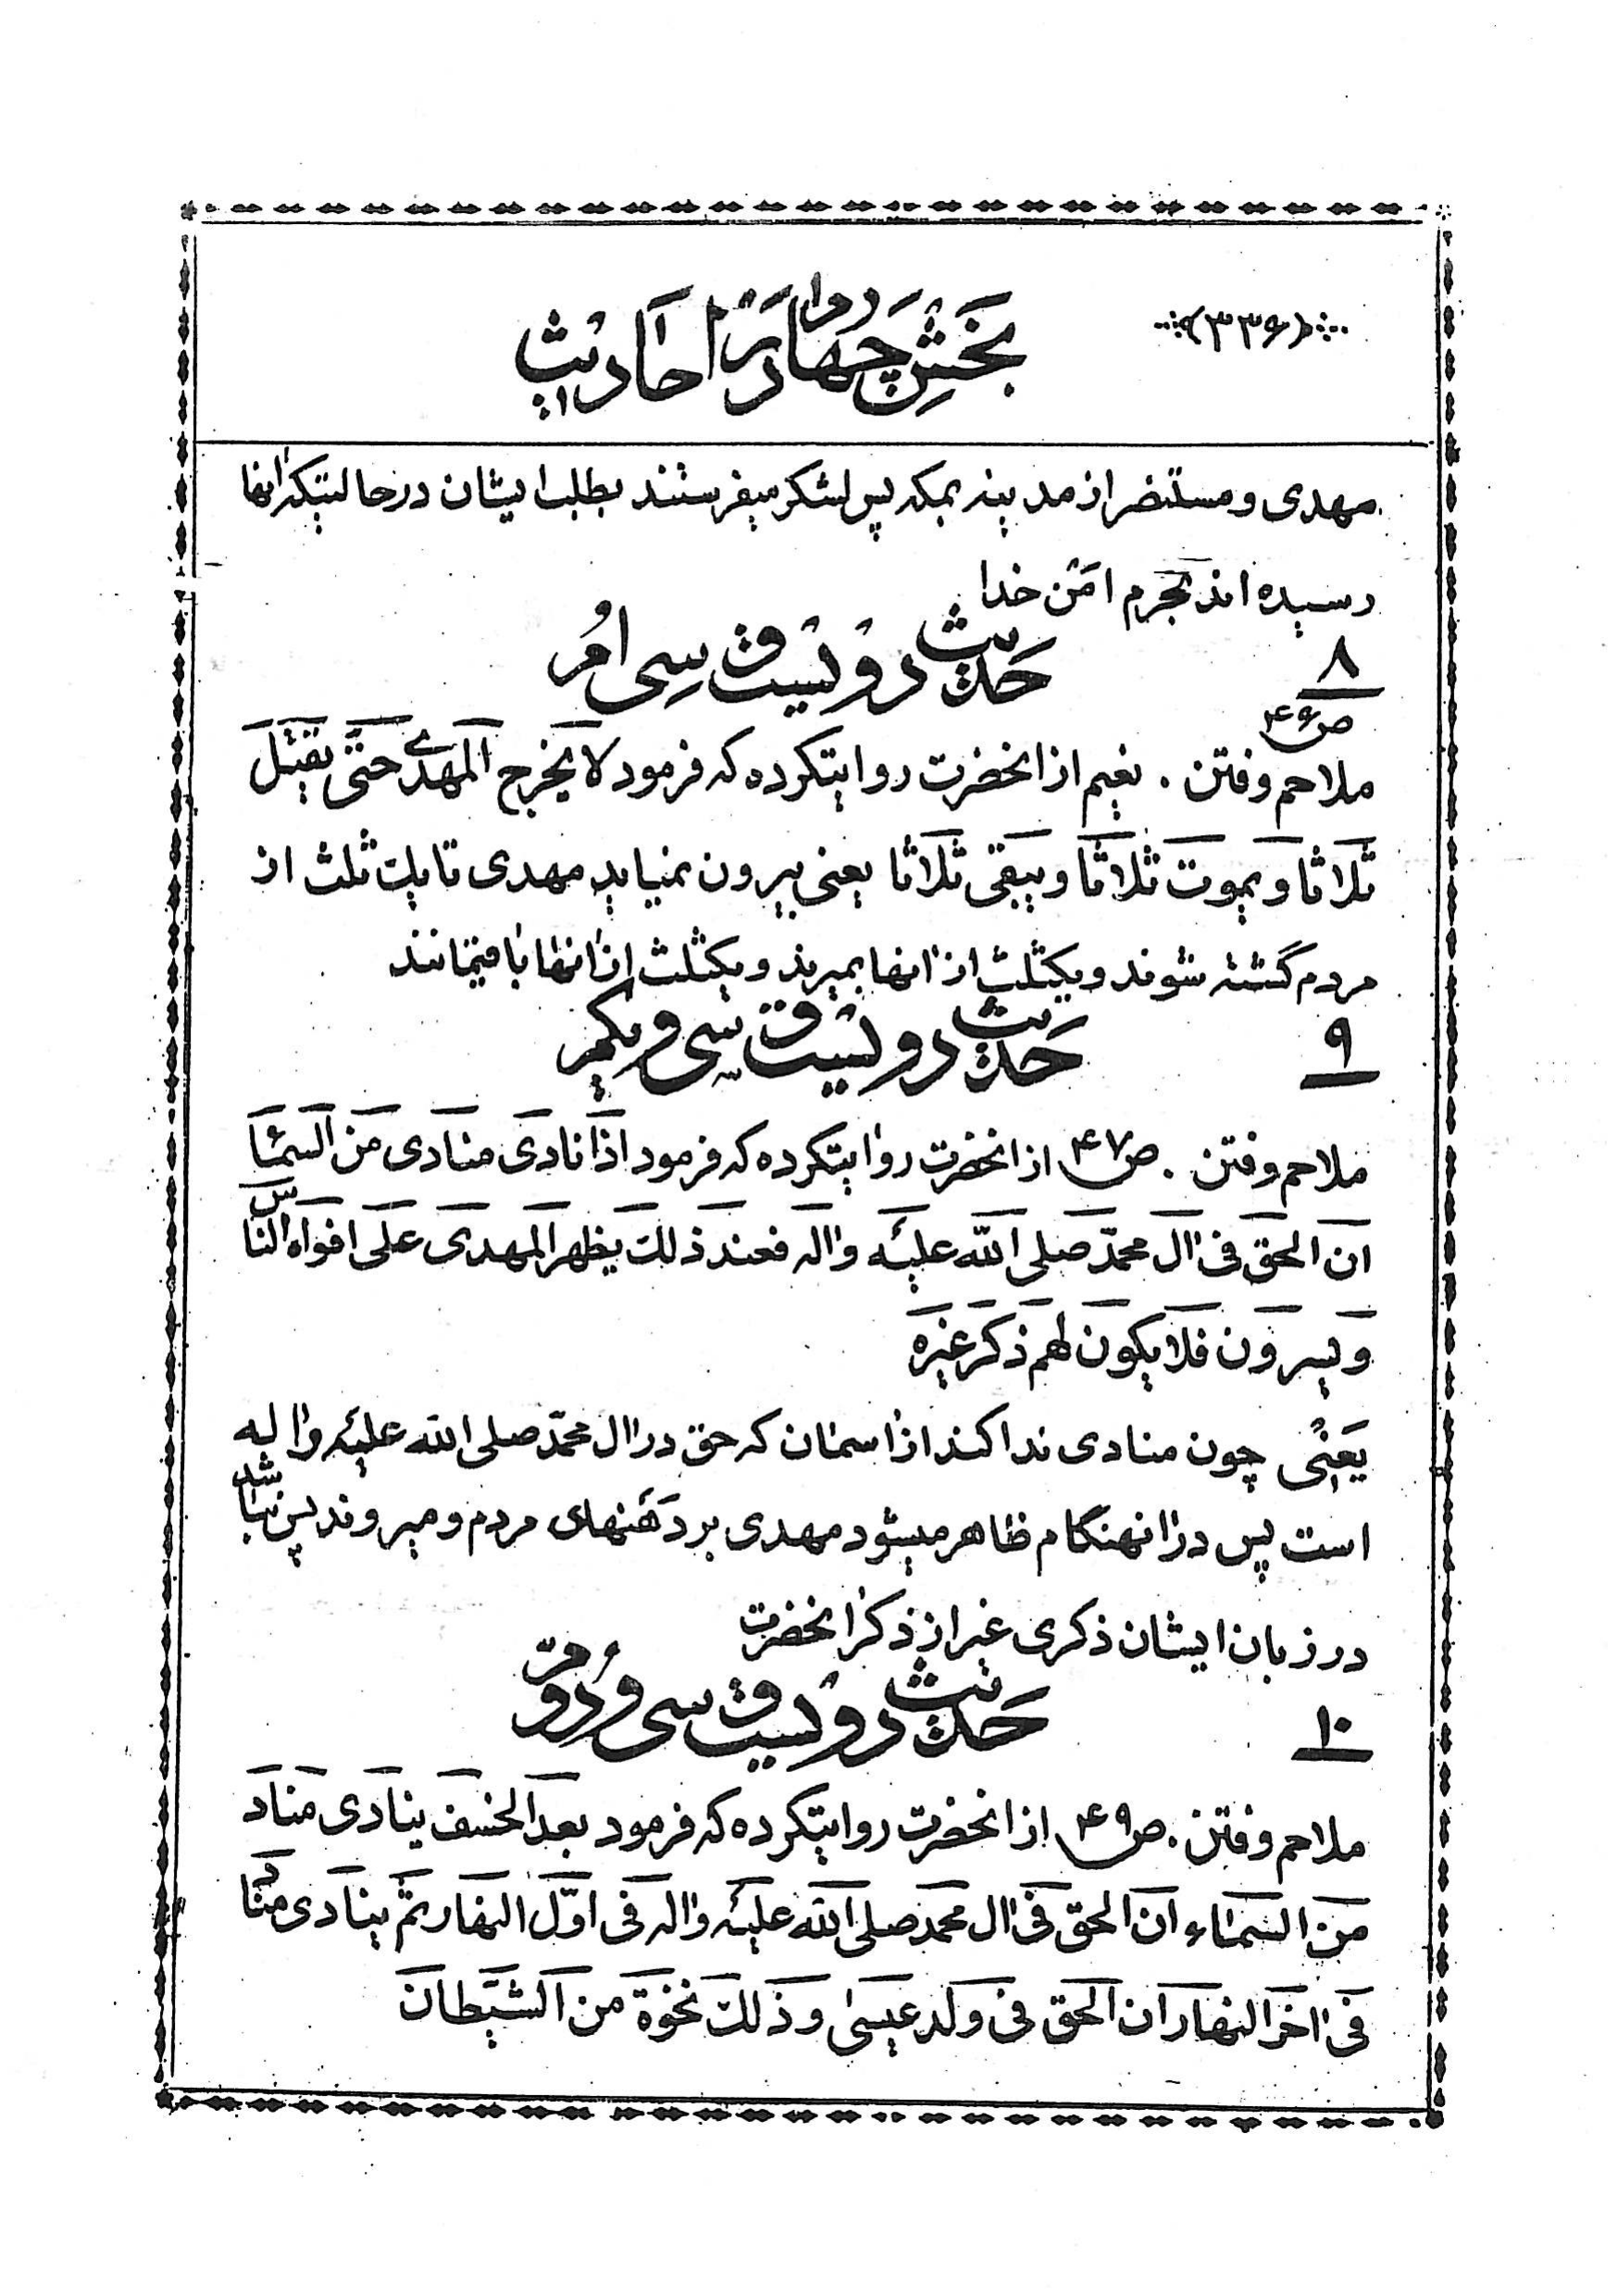 (۳۳۶)
بخش چهارم در احادیث
مهدی و مستنصر از مدینه بمکه پس لشکر میفرستند بطلب ایشان در حالتیکه انها
رسیده اند بحرم امن خدا
۸ حدیث دویست و سی ام
ص۴۶
ملاحم وفتن . نعیم از انحضرت روایتکرده که فرمود لا یخرج المهدی حتّی یقتل
ثلاثا ویموت ثلاثا ویبقی ثلاثا یعنی بیرون نمیاید مهدی تا یک ثلث از
مردم کشته شوند ویکثلث از انها بمیرند ویکثلث از انها باقیمانند
۹ حدیث دویست و سی و یکم
ملاحم وفتن . ص۴۷ از انحضرت روایتکرده که فرمود اذا نادی منادی من السّماء
ان الحق فی ال محمّد صلی الله علیه واله فعند ذلک یظهر المهدی علی افواه النّاس
ویسرون فلا یکون لهم ذکر غیره
یعنی چون منادی ندا کند از اسمان که حق در ال محمّد صلی الله علیه واله
است پس در انهنگام ظاهر میشود مهدی بر دهنهای مردم و میروند پس نباشد
در زبان ایشان ذکری غیر از ذکر انحضرت
۱۰ حدیث دویست و سی و دوّم
ملاحم وفتن . ص۴۹ از انحضرت روایتکرده که فرمود بعد الخسف ینادی مناد
من السماء ان الحق فی ال محمد صلی الله علیه واله فی اوّل النهار ثمّ ینادی مناد
فی اخر النهار ان الحق فی ولد عیسی وذلک نخوة من الشیطان